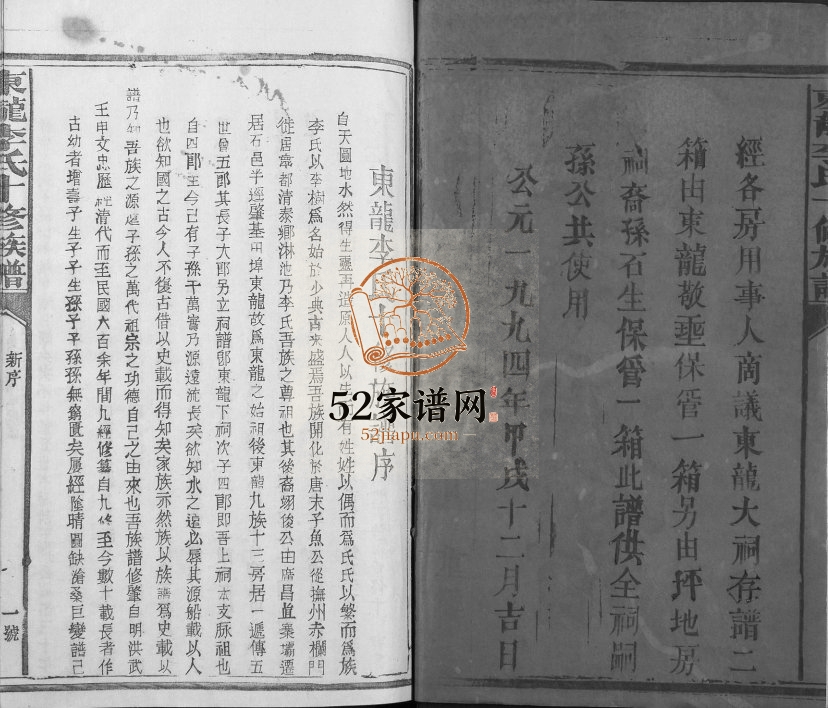 經各房用事人商議東龍大祠存譜二
箱由東龍敬亜保管一箱另由坪地房
祠裔孫石生保管一箱此譜供全祠嗣
孫公共使用
公元一九九四年甲戌十二月吉日
東龍李氏十修族譜序
自天圓地水然得生靈
人人以
有姓姓以偶而爲氏氏以繁而爲族
李氏以李樹爲名始於少典古來盛焉吾族開化於唐末子魚公從撫州赤欄門
徙居章都清泰鄉淋池乃李氏吾族之尊祖也其後裔翊俊公由席昌直寨壩遷
居石邑半逕肇基田埠東龍故爲東龍之始祖後東龍九族十三房居一遞傳五
世曾五郎其長子大郎另立祠譜卽東龍下祠次子四郎卽吾上祠本支脉祖也
自四郎至今已有子孫千萬實乃源遠流長矣欲知水之遠必辱其源船載以人
也欲知國之古今人不復古借以史載而得知矣家族亦然族以族譜爲史載以
譜乃知吾族之源庭子孫之萬代祖宗之功德自己之由來也吾族譜修肇自明洪武
壬申文忠歷經清代而至民國六百余年間九經修篡自九修至今數十載長者作
古幼者增壽子生子子生孫子子孫孫無窮匱矣屢經陰晴圓缺滄桑巨變譜己
東龍李氏十修族譜
新序
一號
52家谱网
52jiapu.com